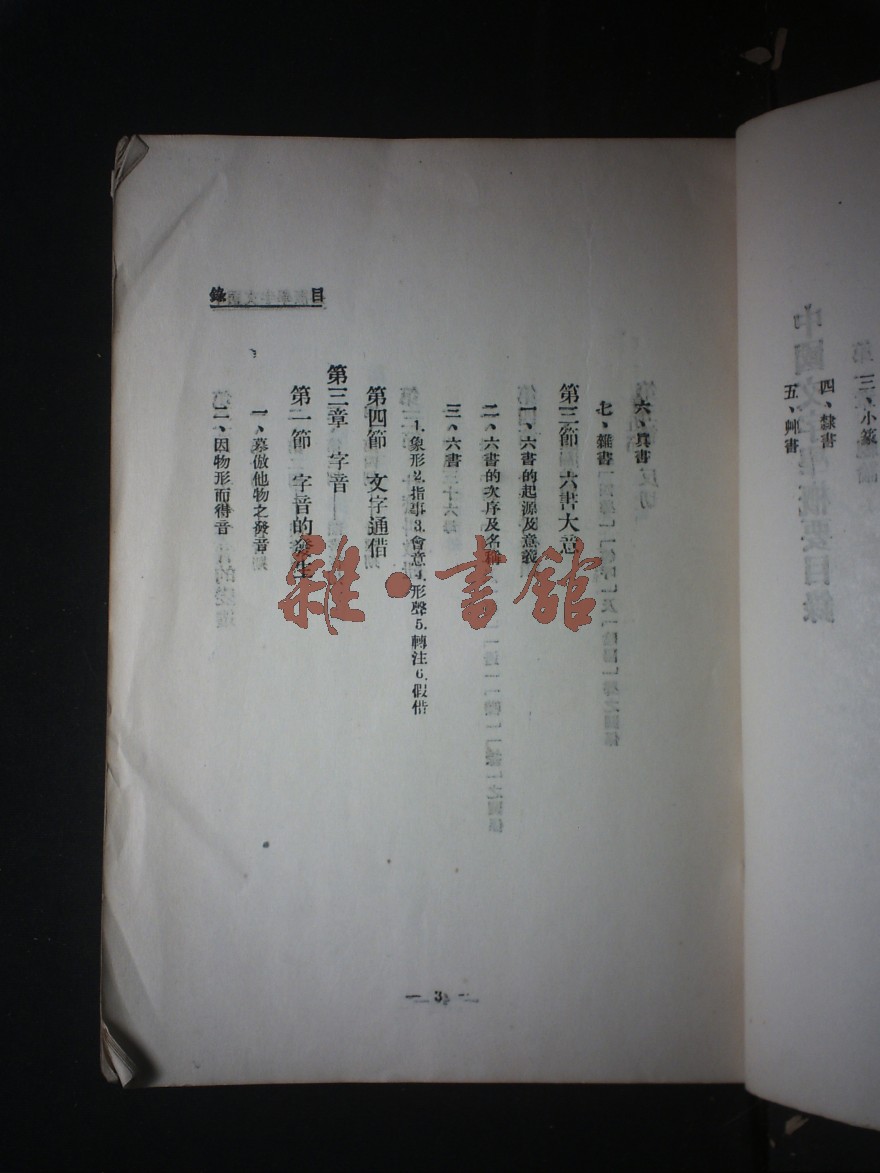 三、小篆
四、隸書
五、艸書
目錄
六、眞書
七、雜書
第三節 六書大意
一、六書的起源及意義
二、六書的次序及名稱
三、六書
1.象形2.指事3.會意4.形聲5.轉注6.假借
第四節 文字通借
第三章 字音
第一節 字音的發生
一、摹倣他物之發音
二、因物形而得音
— 3 —
雜·書館